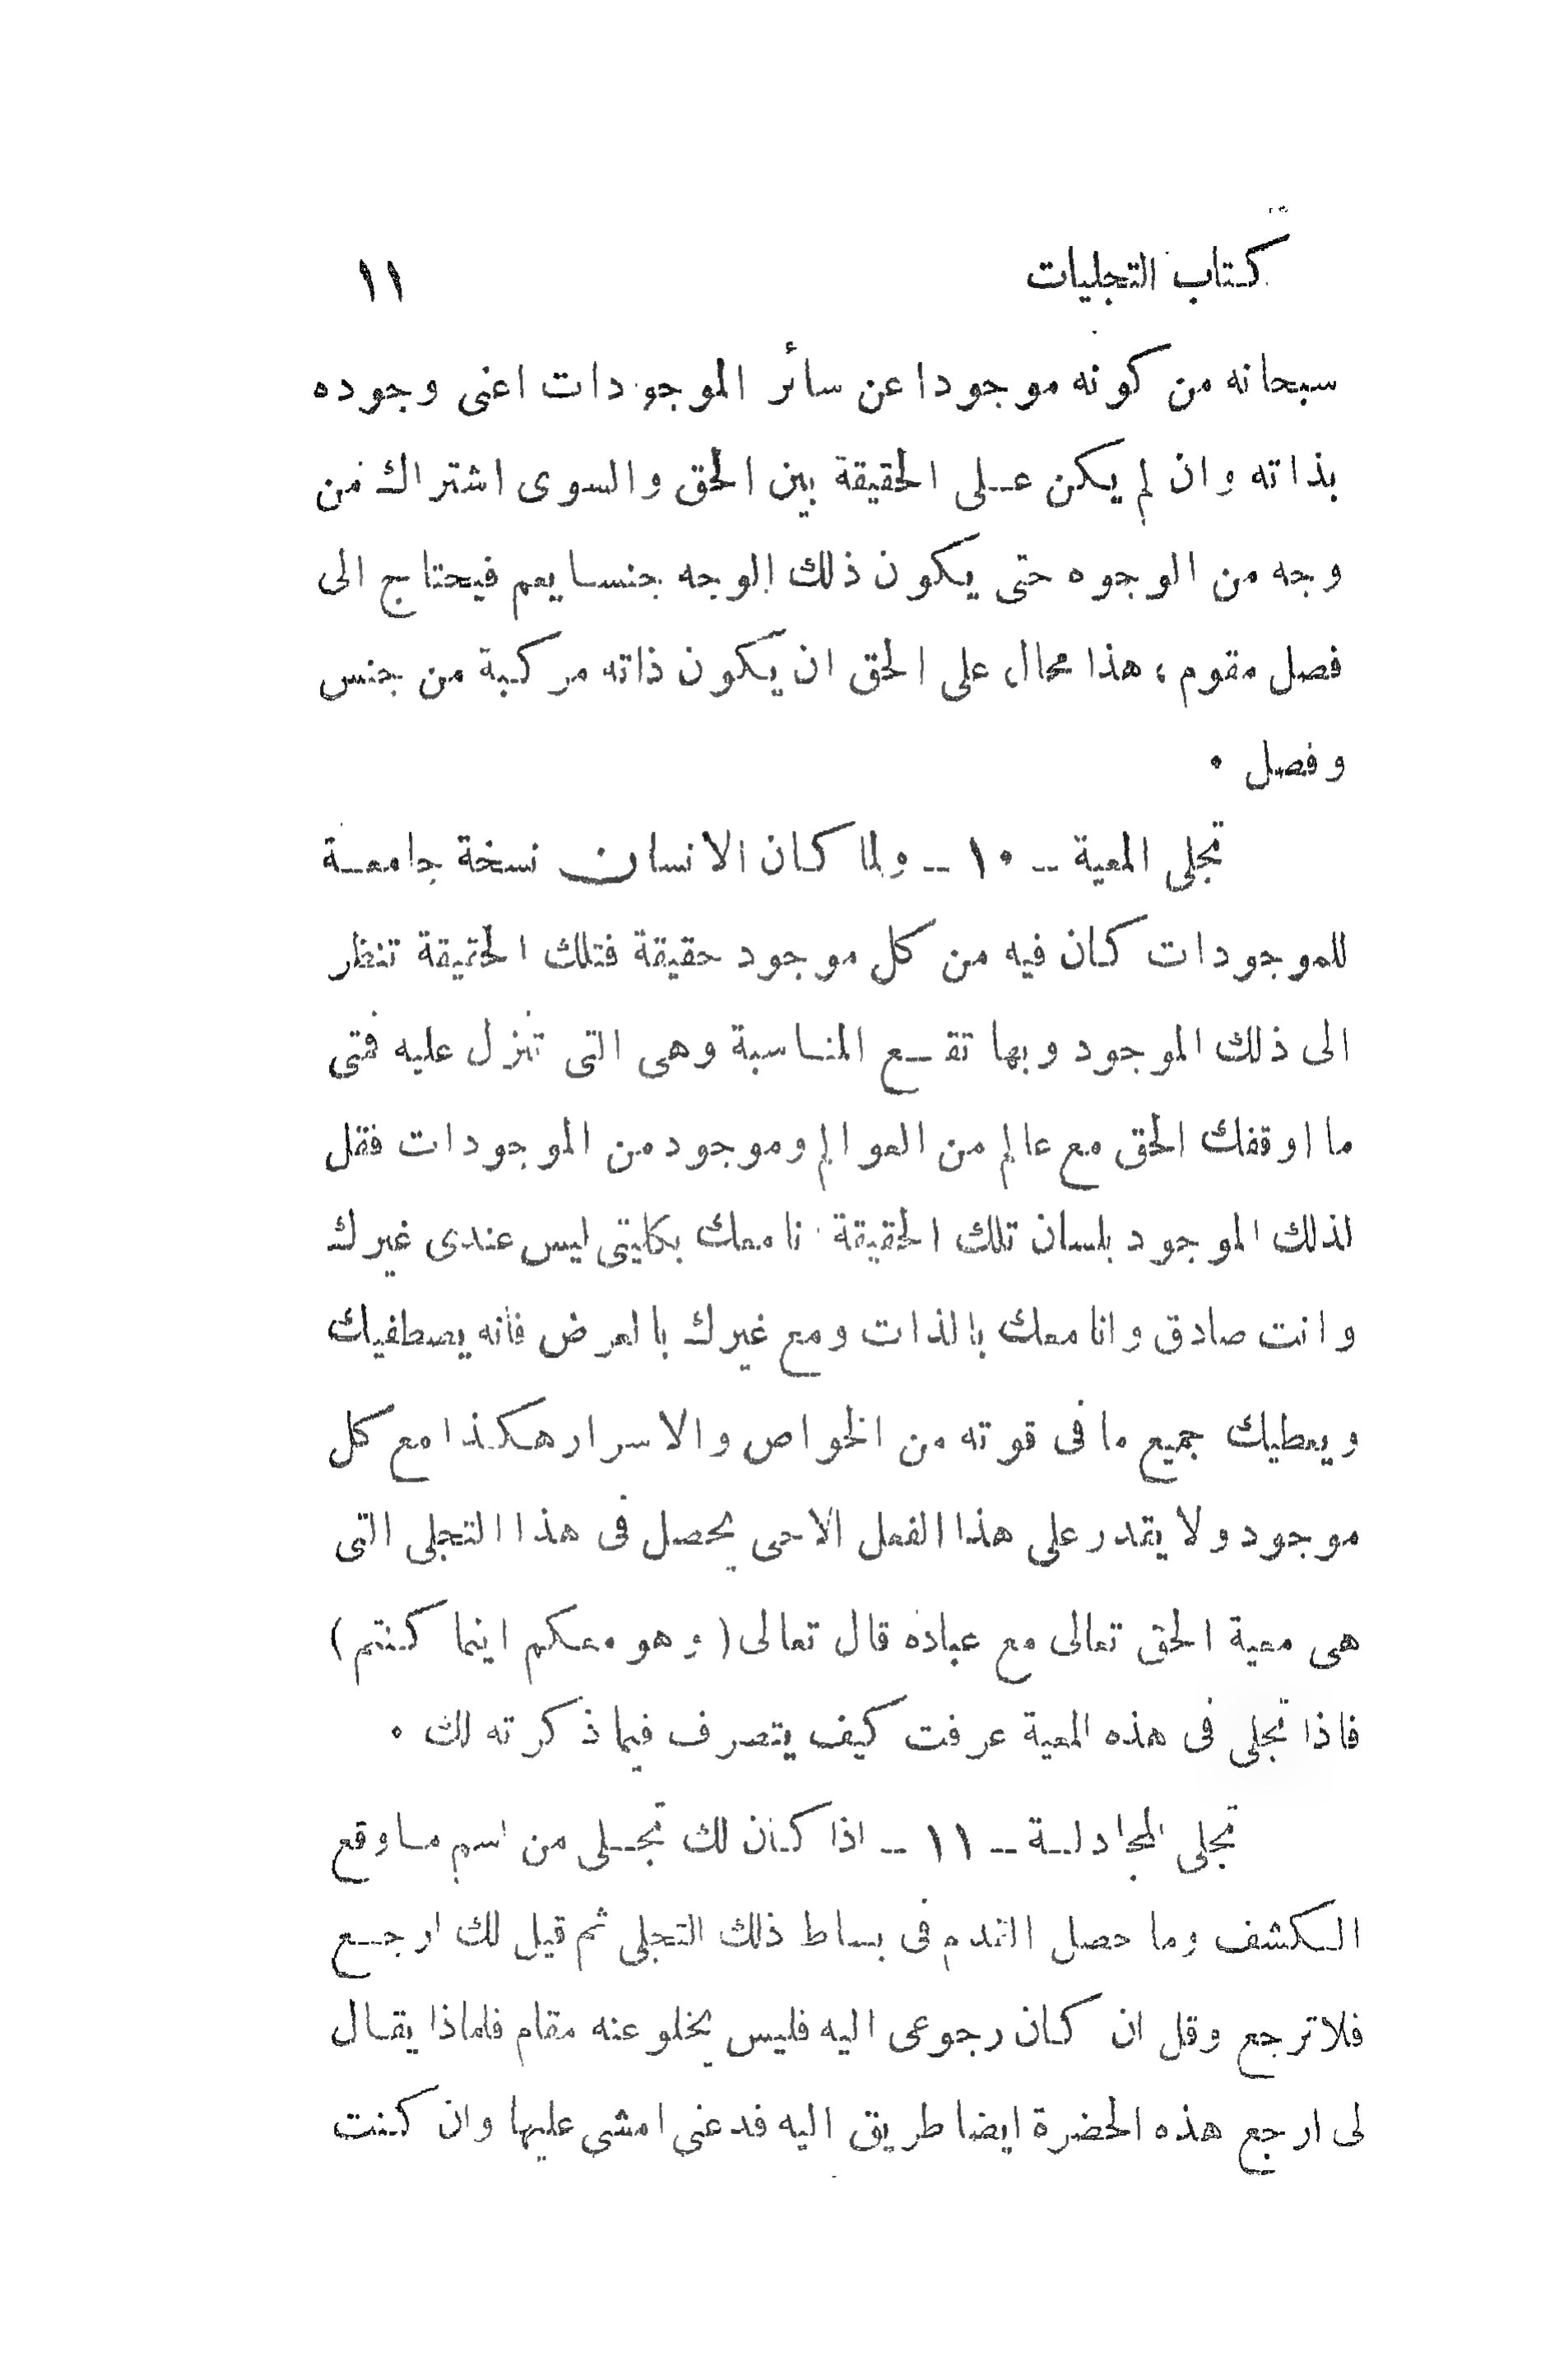 كتاب التجليات ١١
سبحانه من كونه موجودا عن سائر الموجودات اعنى وجوده
بذاته وان لم يكن على الحقيقة بين الحق والسوى اشتراك من
وجه من الوجوه حتى يكون ذلك الوجه جنسا يعم فيحتاج الى
فصل مقوم، هذا محال على الحق ان يكون ذاته مركبة من جنس
وفصل ٠
تجلى المعية – ١٠ – ولما كان الانسان نسخة جامعة
للموجودات كان فيه من كل موجود حقيقة فتلك الحقيقة تنظر
الى ذلك الموجود وبها تقع المناسبة وهى التى تنزل عليه فمتى
ما اوقفك الحق مع عالم من العوالم وموجود من الموجودات فقل
لذلك الموجود بلسان تلك الحقيقة انا معك بكليتى ليس عندى غيرك
وانت صادق وانا معك بالذات ومع غيرك بالعرض فانه يصطفيك
ويعطيك جميع ما فى قوته من الخواص والاسرار هكذا مع كل
موجود ولا يقدر على هذا الفعل الاحى يحصل فى هذا التجلى التى
هى معية الحق تعالى مع عباده قال تعالى (وهو معكم اينما كنتم)
فاذا تجلى فى هذه المعية عرفت كيف يتصرف فيما ذكرته لك ٠
تجلى المجادلة – ١١ – اذا كان لك تجلى من اسم ما وقع
الكشف وما حصل القدم فى بساط ذلك التجلى ثم قيل لك ارجع
فلا ترجع وقل ان كان رجوعى اليه فليس يخلو عنه مقام فلماذا يقال
لى ارجع هذه الحضرة ايضا طريق اليه فدعنى امشى عليها وان كنت